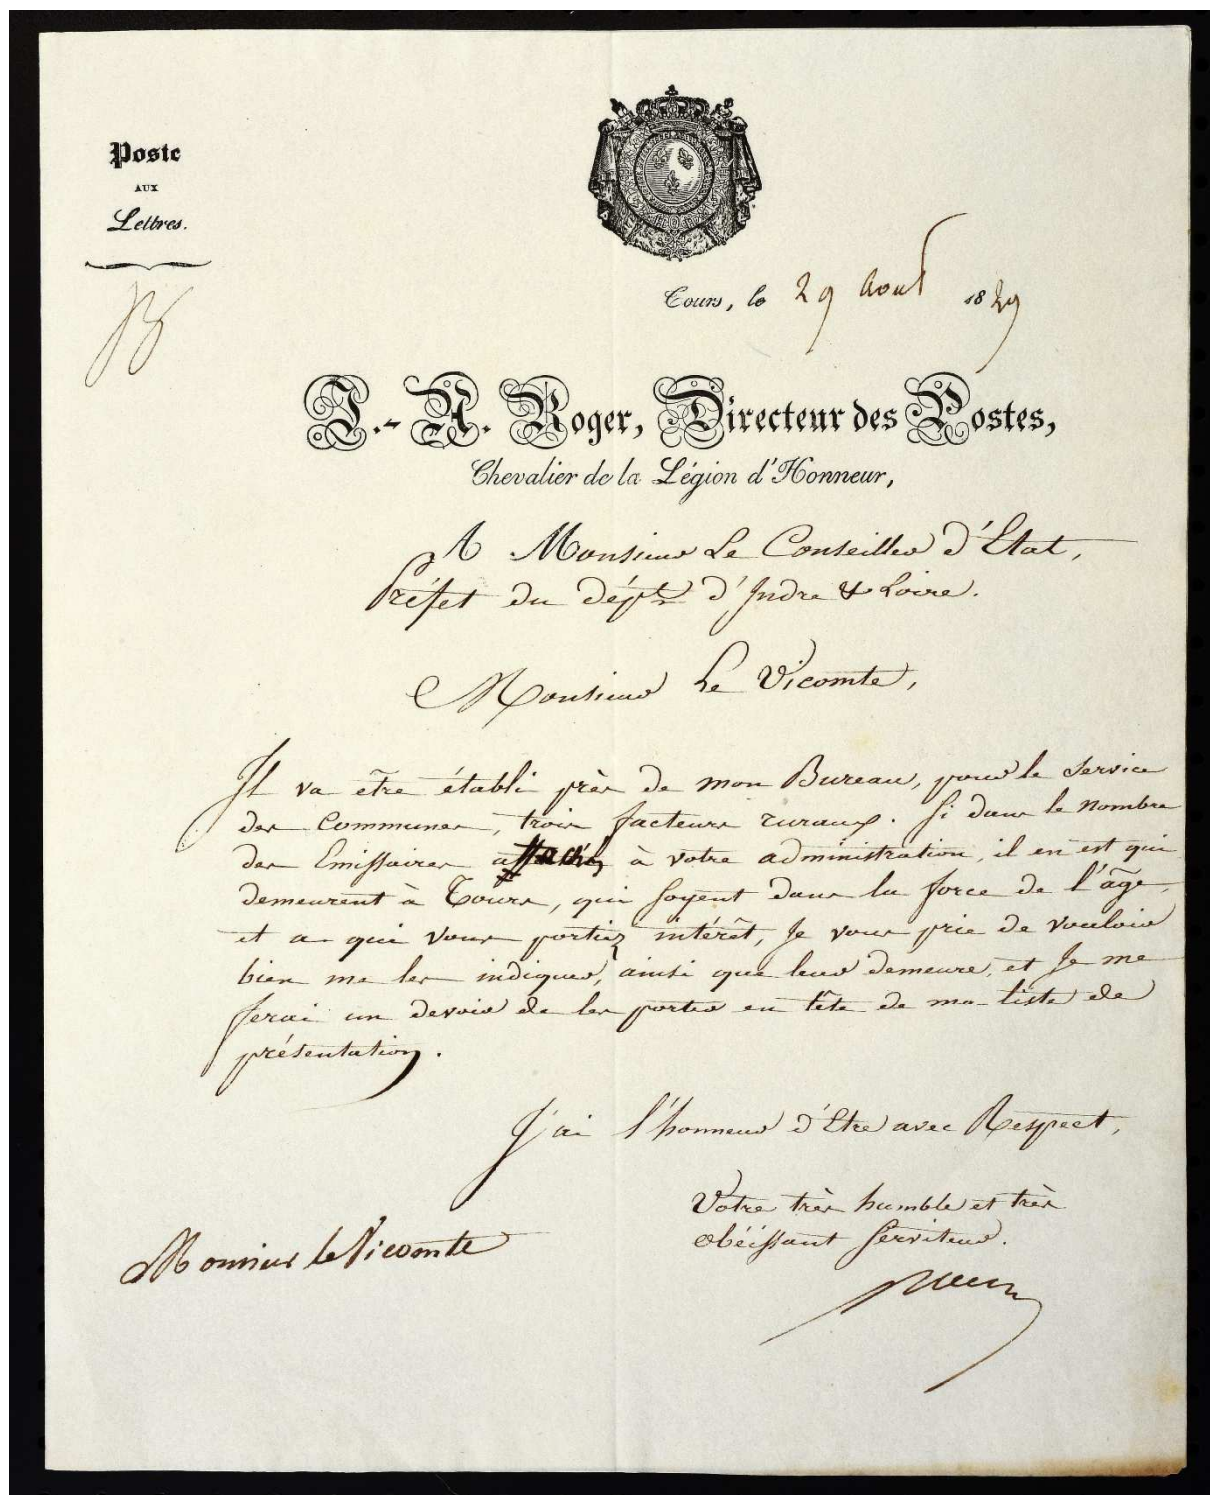 Poste
AUX
Lettres.
Tours, le 29 Aout 1829
J.-A. Roger, Directeur des Postes,
Chevalier de la Légion d'Honneur,
A Monsieur Le Conseiller d'Etat,
Préfet du dépt. d'Indre & Loire.
Monsieur Le Vicomte,
Il va être établi près de mon Bureau, pour le service
des Communes, trois facteurs ruraux. Si dans le nombre
des Emissaires attachés à votre administration, il en est qui
demeurent à Tours, qui soyent dans la force de l'âge,
et a qui vous portiez intérêt, Je vous prie de vouloir
bien me les indiquer, ainsi que leur demeure, et Je me
ferai un devoir de les porter en tête de ma liste de
présentation.
J'ai l'honneur d'Etre avec Respect,
Votre très humble et très
obéissant Serviteur.
Monsieur le Vicomte
Roger